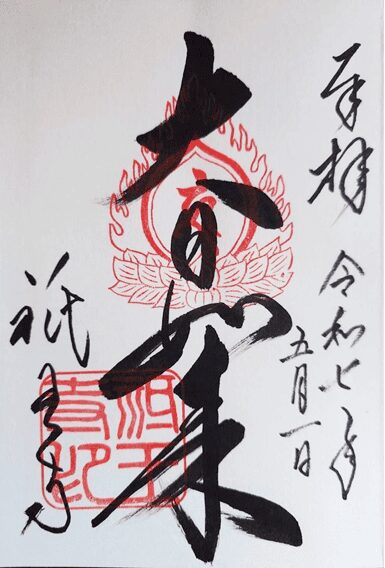 奉拝 令和七年
五月一日
大日如来
祇王寺
祇王
寺印